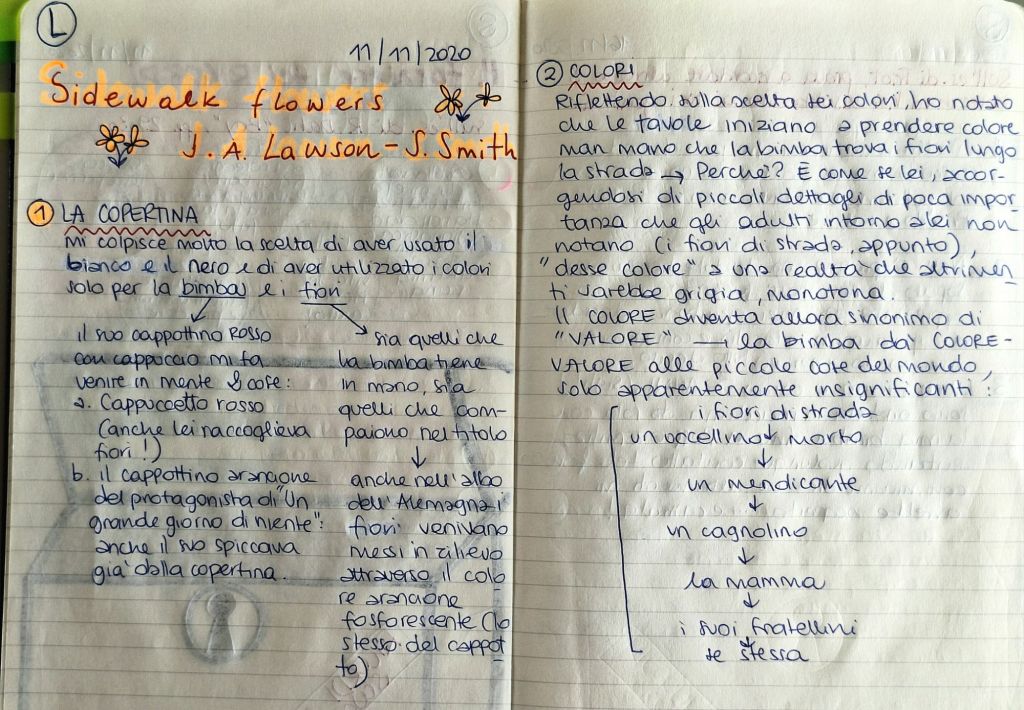 L
11/11/2020
Sidewalk flowers
J. A. Lawson - S. Smith
1 LA COPERTINA
Mi colpisce molto la scelta di aver usato il
bianco e il nero e di aver utilizzato i colori
solo per la bimba e i fiori
il suo cappottino rosso
con cappuccio mi fa
venire in mente 2 cose:
a. Cappuccetto rosso
(anche lei raccoglieva
fiori!)
b. il cappottino arancione
del protagonista di "Un
grande giorno di niente":
anche il suo spiccava
già dalla copertina.
sia quelli che
la bimba tiene
in mano, sia
quelli che com-
paiono nel titolo
anche nell'albo
dell'Alemagna i
fiori venivano
messi in rilievo
attraverso il colo
re arancione
fosforescente (lo
stesso del cappot
to)
2 COLORI
Riflettendo sulla scelta dei colori, ho notato
che le tavole iniziano a prendere colore
man mano che la bimba trova i fiori lungo
la strada → Perché? È come se lei, accor-
gendosi di piccoli dettagli di poca impor
tanza che gli adulti intorno a lei non
notano (i fiori di strada, appunto),
"desse colore" a una realtà che altrimen
ti sarebbe grigia, monotona.
Il COLORE diventa allora sinonimo di
"VALORE" → la bimba dà COLORE-
VALORE alle piccole cose del mondo,
solo apparentemente insignificanti:
i fiori di strada
un uccellino morto
un mendicante
un cagnolino
la mamma
i suoi fratellini
se stessa